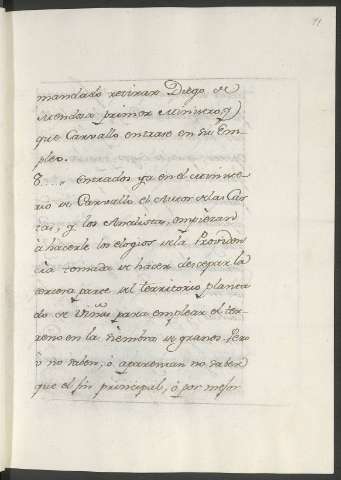 71
mandado retirar Diego de
Mendoza primer Ministro, y
que Carvallo entrase en su Em-
pleo.
8.... entrados ya en el Ministe-
rio de Carvallo el Autor de las Car-
tas, y los Analistas, empiezan
à hacerle los elogios de la Providen-
cia tomada de hacer descepar la
tercera parte del territorio planta-
do de Viñas para emplear el ter-
reno en la siembra de granos. Pero
ò no saben, ò aparentan no saber
que el fin principal, ò por mejor